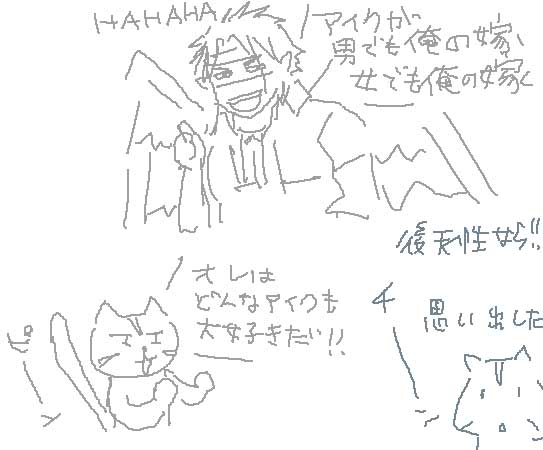 HAHAHA
アイクが
男でも俺の嫁
女でも俺の嫁
後天性なら!!
オレは
どんなアイクも
大好きだい!!
思い出した